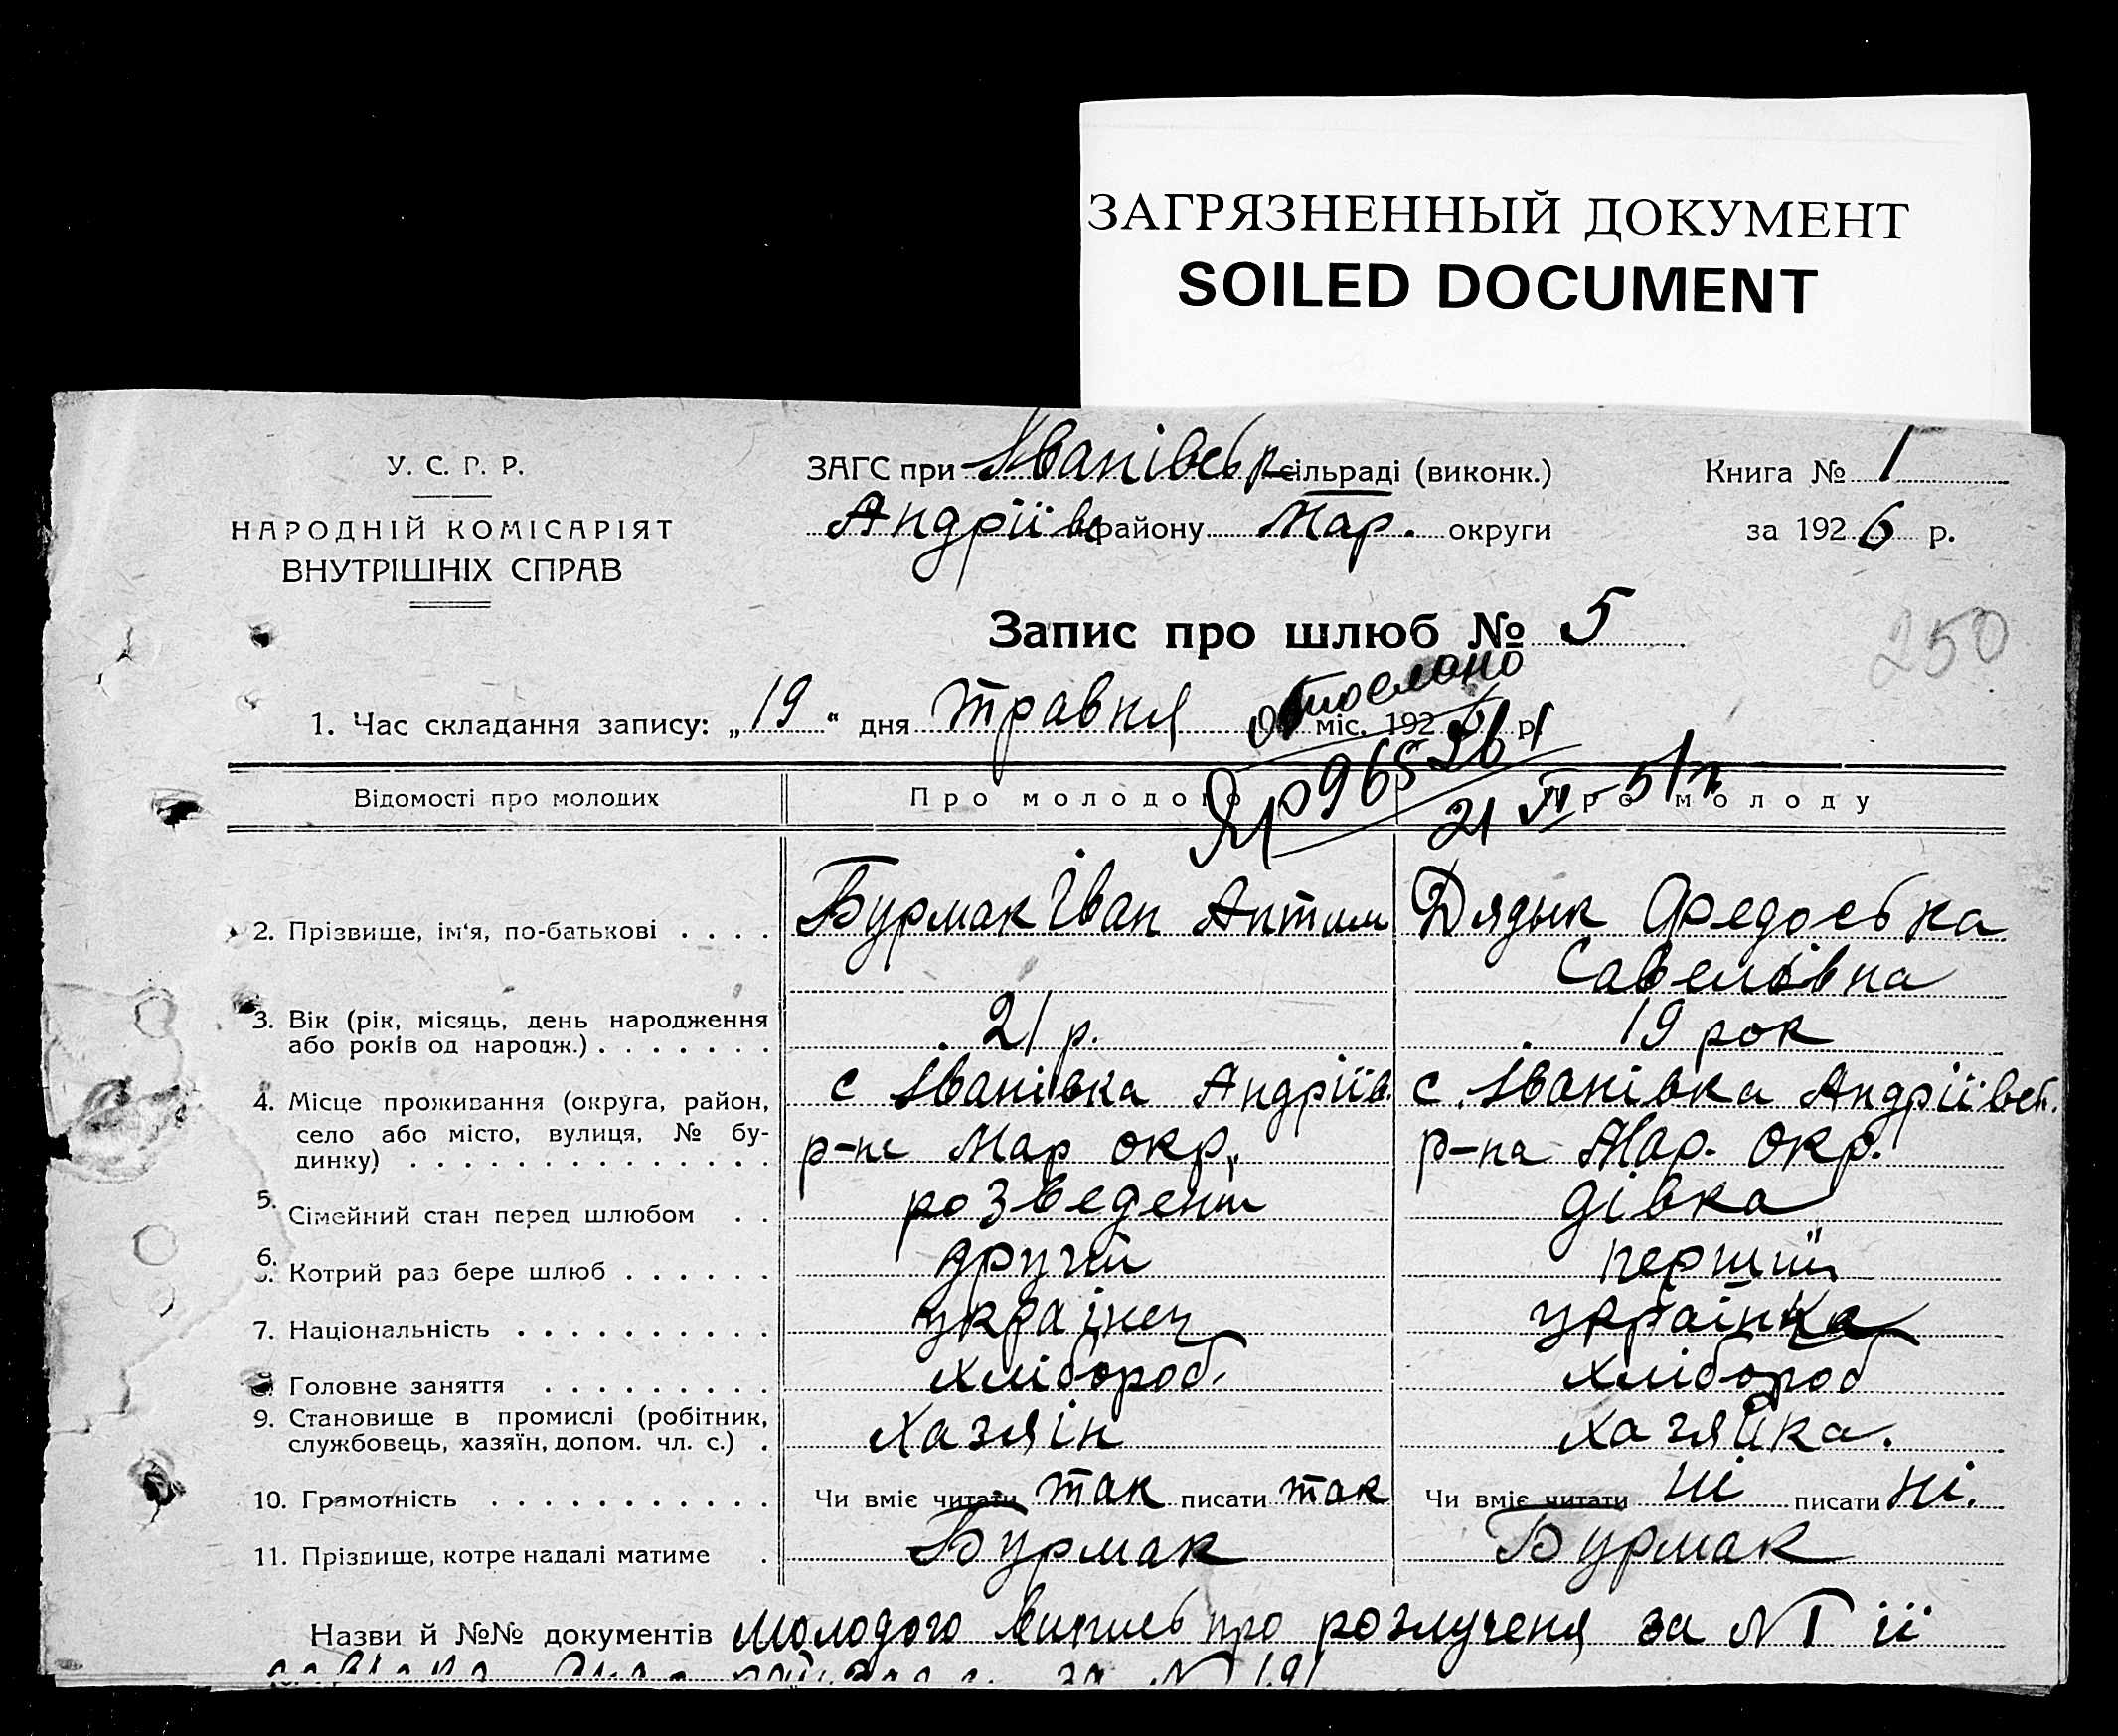 ЗАГРЯЗНЕННЫЙ ДОКУМЕНТ
SOILED DOCUMENT
У. С. Р. Р.
НАРОДНІЙ КОМІСАРІЯТ
ВНУТРІШНІХ СПРАВ
ЗАГС при Іванівськ сільраді (виконк.)
Андріївс району Мар. округи
Книга № 1
за 1926 р.
Запис про шлюб № 5
250
1. Час складання запису: „19“ дня травня міс. 1926 р.
отослано
965
Відомості про молодих
Про молодого
Про молоду
2. Прізвище, ім'я, по-батькові . . . . Бурмак Іван Антим Дядык Федоська
Савелівна
3. Вік (рік, місяць, день народження
або років од народж.) . . . . . . . 21 р. 19 рок
4. Місце проживання (округа, район, с Іванівка Андріїв. с. Іванівка Андріївск.
село або місто, вулиця, № бу-
динку) . . . . . . . . . . . . . . р-на Мар окр, р-на Мар. окр.
5. Сімейний стан перед шлюбом . . розведени дівка
6. Котрий раз бере шлюб . . . . . . другий перший
7. Національність . . . . . . . . . . українец українка
8. Головне заняття . . . . . . . . . хлібороб. хлібороб
9. Становище в промислі (робітник,
службовець, хазяїн, допом. чл. с.) . хазяін хазяйка.
10. Грамотність . . . . . . . . . . . Чи вміє читати так писати так Чи вміє читати ні писати ні.
11. Прізвище, котре надалі матиме . Бурмак Бурмак
Назви й №№ документів молодого випись про розлученя за № 1 її
за № 191